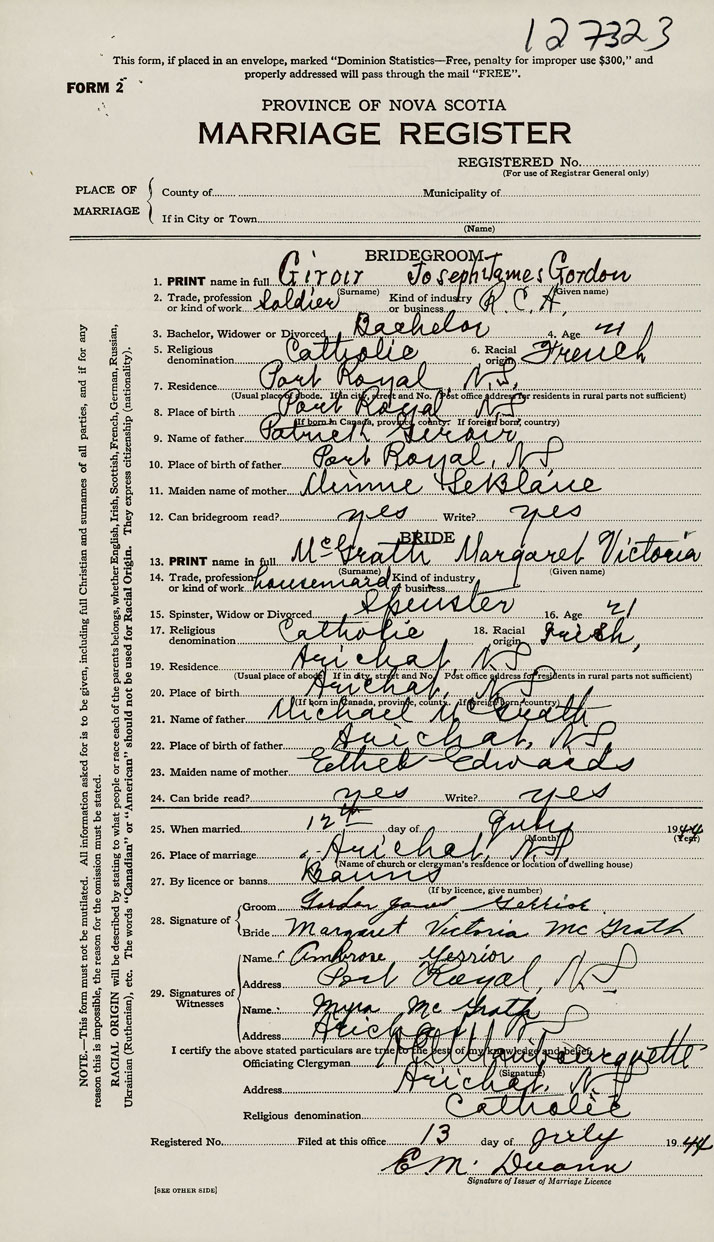 127323
This form, if placed in an envelope, marked "Dominion Statistics—Free, penalty for improper use $300," and
properly addressed will pass through the mail "FREE".
FORM 2
PROVINCE OF NOVA SCOTIA
MARRIAGE REGISTER
REGISTERED No.
(For use of Registrar General only)
PLACE OF MARRIAGE
County of Municipality of
If in City or Town
(Name)
BRIDEGROOM
1. PRINT name in full Giroir Joseph James Gordon
(Surname) (Given name)
2. Trade, profession or kind of work Soldier Kind of industry or business R.C.A.
3. Bachelor, Widower or Divorced Bachelor 4. Age 21
5. Religious denomination Catholic 6. Racial origin French
7. Residence Port Royal, N.S.
(Usual place of abode. If in city, street and No. Post office address for residents in rural parts not sufficient)
8. Place of birth Port Royal NS
(If born in Canada, province, county. If foreign born, country)
9. Name of father Patrick Giroir
10. Place of father Port Royal, NS
11. Maiden name of mother Minnie LeBlanc
12. Can bridegroom read? yes Write? yes
BRIDE
13. PRINT name in full McGrath Margaret Victoria
(Surname) (Given name)
14. Trade, profession or kind of work housemaid Kind of industry or business
15. Spinster, Widow or Divorced Spinster 16. Age 21
17. Religious denomination Catholic 18. Racial origin Irish,
19. Residence Arichat, NS
(Usual place of abode. If in city, street and No. Post office address for residents in rural parts not sufficient)
20. Place of birth Arichat, NS
(If born in Canada, province, county. If foreign born, country)
21. Name of father Michael McGrath
22. Place of birth of father Arichat, NS
23. Maiden name of mother Ethel Edwards
24. Can bride read? yes Write? yes
25. When married 12th day of July 1944
(Month) (Year)
26. Place of marriage Arichat, N.S.
(Name of church or clergyman's residence or location of dwelling house)
27. By licence or banns Banns
(If by licence, give number)
28. Signature of
Groom Gordon James Gerrior
Bride Margaret Victoria McGrath
29. Signatures of Witnesses
Name Ambrose Gerrior
Address Port Royal, NS
Name Myra McGrath
Address Arichat NS
I certify the above stated particulars are true to the best of my knowledge and belief.
Officiating Clergyman
(Signature)
Address Arichat, NS
Religious denomination Catholic
Registered No. Filed at this office 13 day of July 1944
E.M.
Signature of Issuer of Marriage Licence
[SEE OTHER SIDE]
NOTE.—This form must not be mutilated. All information asked for is to be given, including full Christian and surnames of all parties, and if for any
reason this is impossible, the reason for the omission must be stated.
RACIAL ORIGIN will be described by stating to what people or race each of the parents belongs, whether English, Irish, Scottish, French, German, Russian,
Ukrainian (Ruthenian), etc. The words "Canadian" or "American" should not be used for Racial Origin. They express citizenship (nationality).